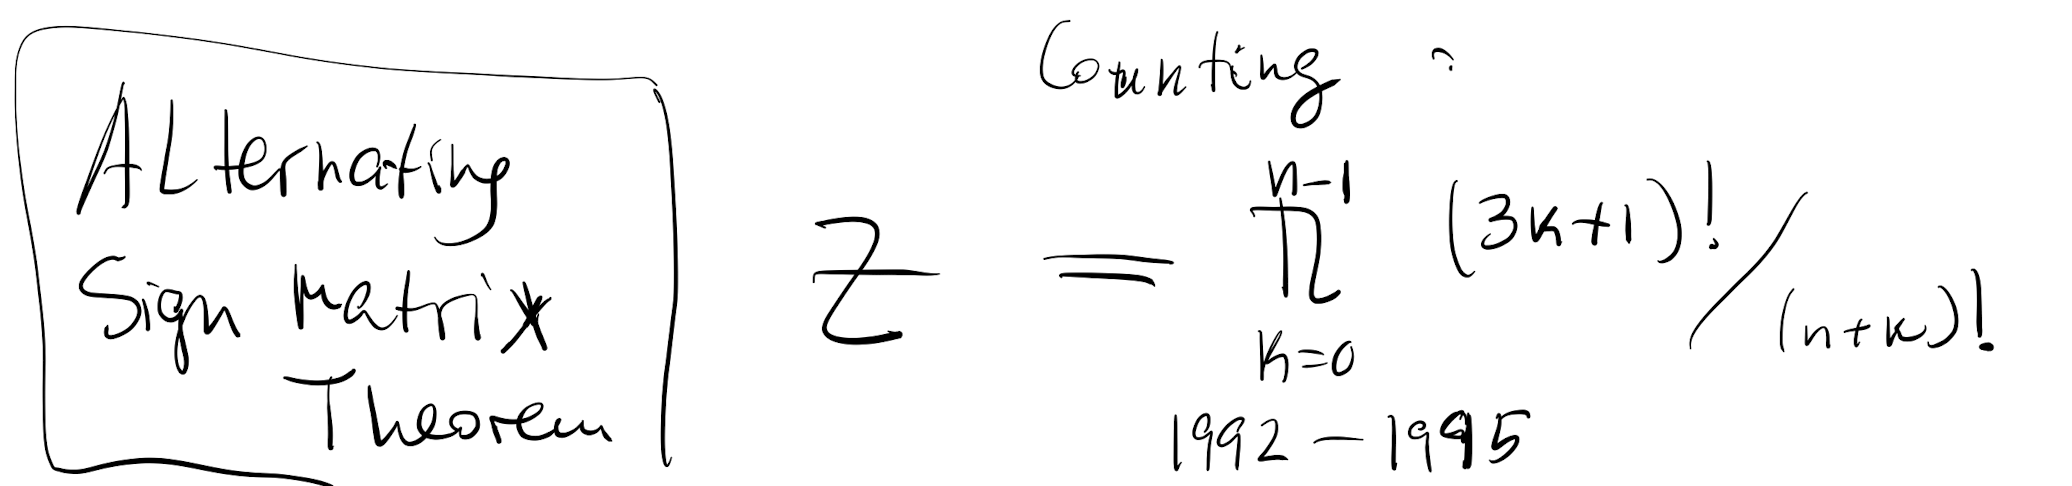 Alternating
Sign Matrix
Theorem
Counting :
Z = ∏_{k=0}^{n-1} (3k+1)! / (n+k)!
1992 – 1995